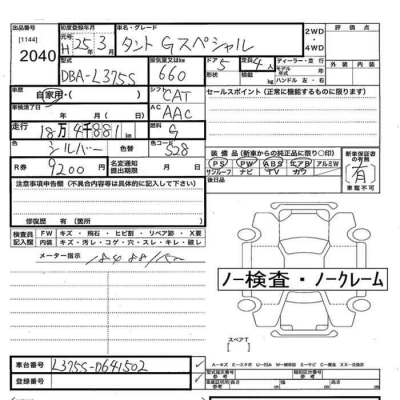 [1144]
2040
初度登録年月 車名・グレード
元号 H 25年 3月 タント Gスペシャル
2WD ・ 4WD
評価点
外装 内装
型式 排気量又はkw ドア 5 定員 4人
DBA-L375S 660
ディーラー・並行
モデル年式
ハンドル 左・右
車歴 シフト
自家用・ CAT
セールスポイント（正常に機能するものに限ります）
車検満了日 AC
年 月 日 AAC
走行 燃料
18万4千881km
色 色コード
シルバー S28
装備品（新車からの純正品に限り〇印）
PS PW ABS エアB アルミW
サンルーフ ナビ TV カワ
新車保証書の有無
有
車載不可
R券 9200円
名変通知提出期限
注意事項申告欄（不具合内容等は具体的に記入して下さい）
修復歴 有（箇所
検査員記入欄 FW キズ・飛石・ヒビ割・リペア跡・X要
内装 キズ・汚レ・コゲ・穴・スレ・キレ・破レ
メーター指示 184881km
ノー検査・ノークレーム
スペアT
車台番号 L375S-0641502
登録番号
型式指定番号 類別区分番号
車両証明用 長さ cm 幅 cm 高さ cm